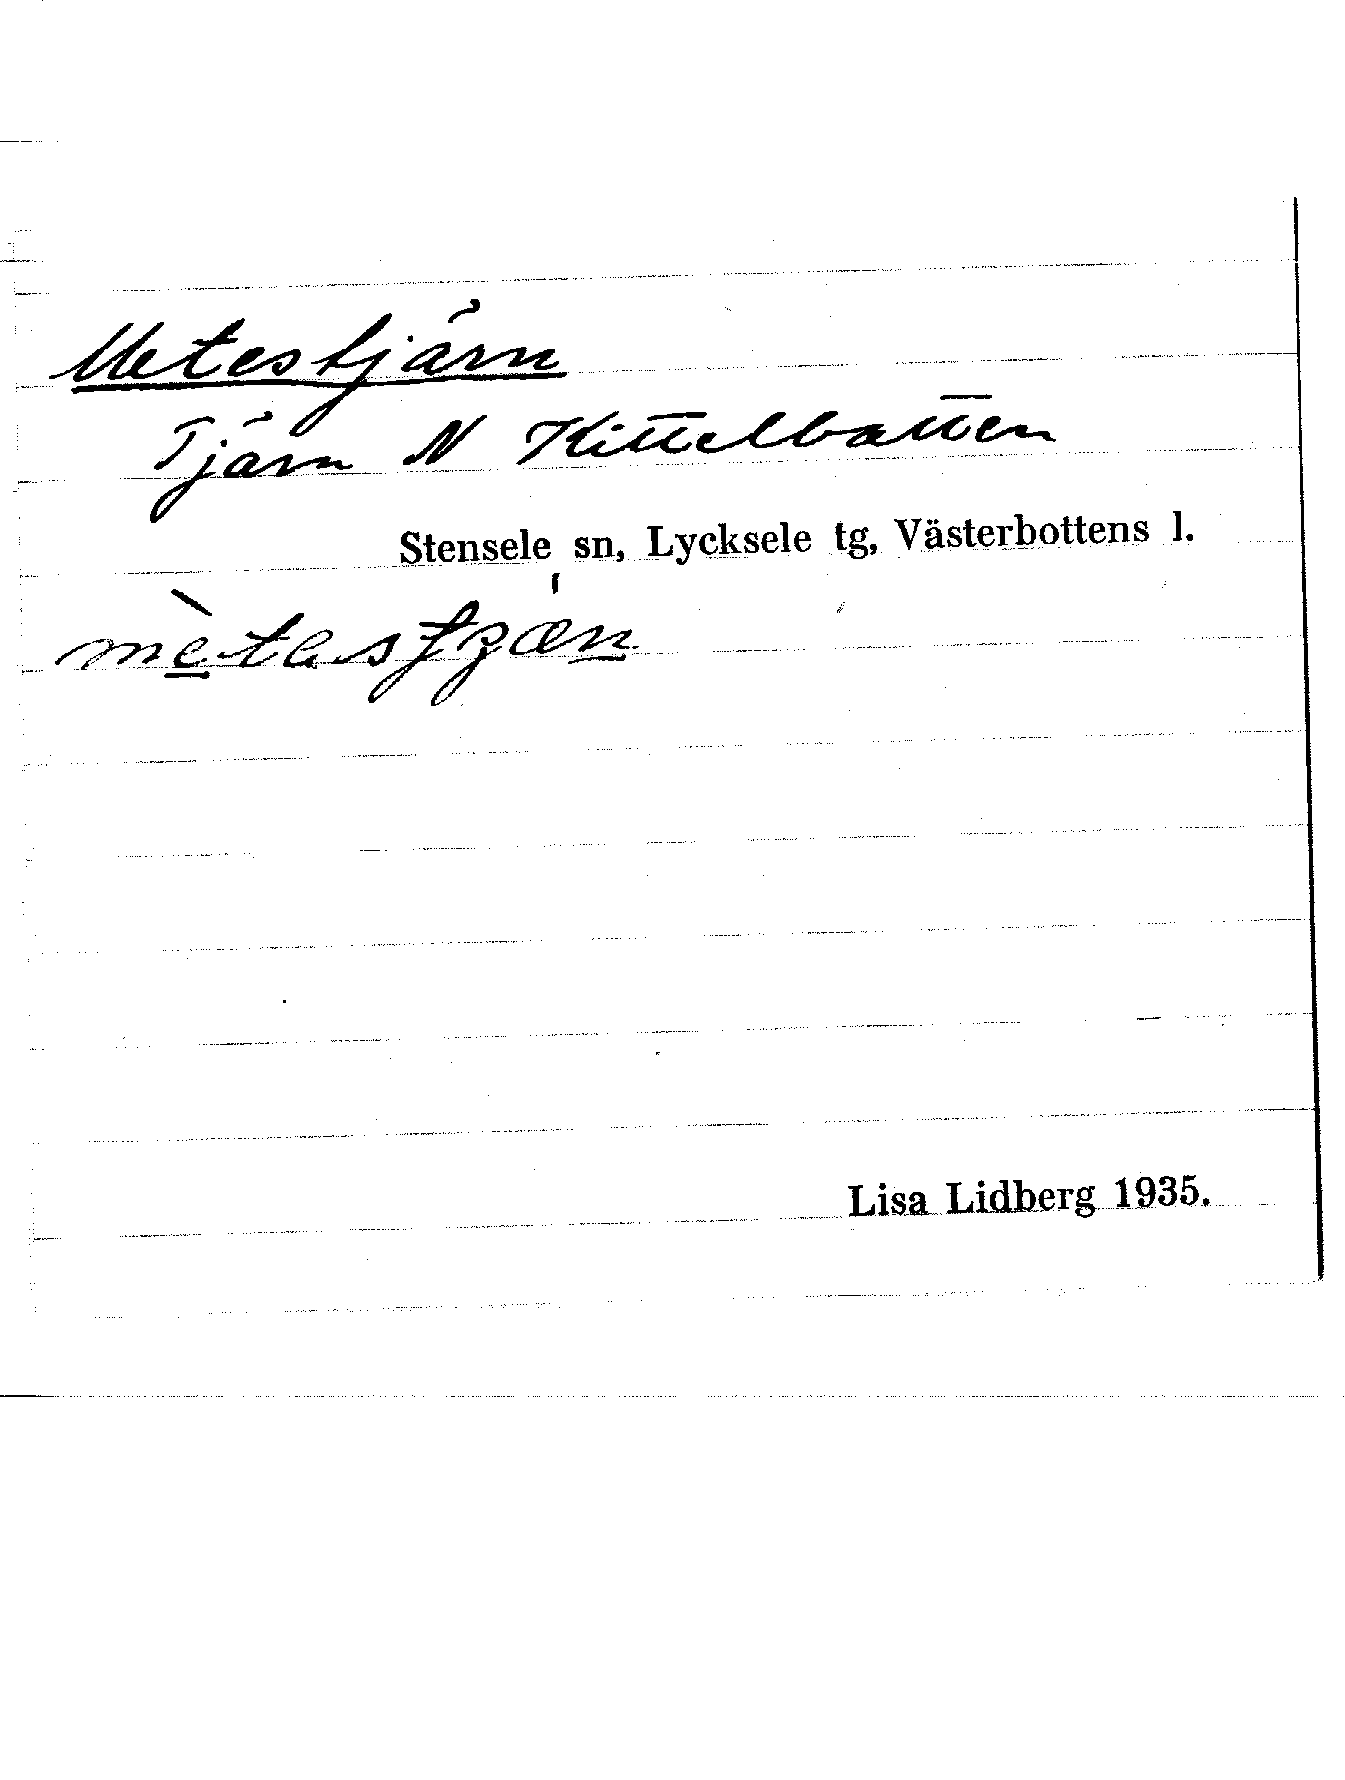 Metestjärn
Tjärn N Kittelbatten
Stensele sn, Lycksele tg, Västerbottens l.
Lisa Lidberg 1935.